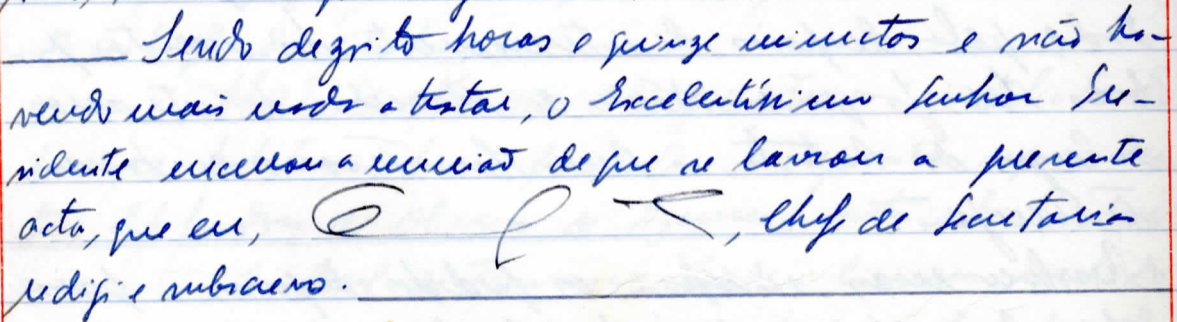 Sendo dezoito horas e quinze minutos e não ha-
vendo mais nada a tratar, o Excelentíssimo Senhor Pre-
sidente encerrou a reunião de que se lavrou a presente
acta, que eu, , Chefe de Secretaria
redigi e subscrevo.